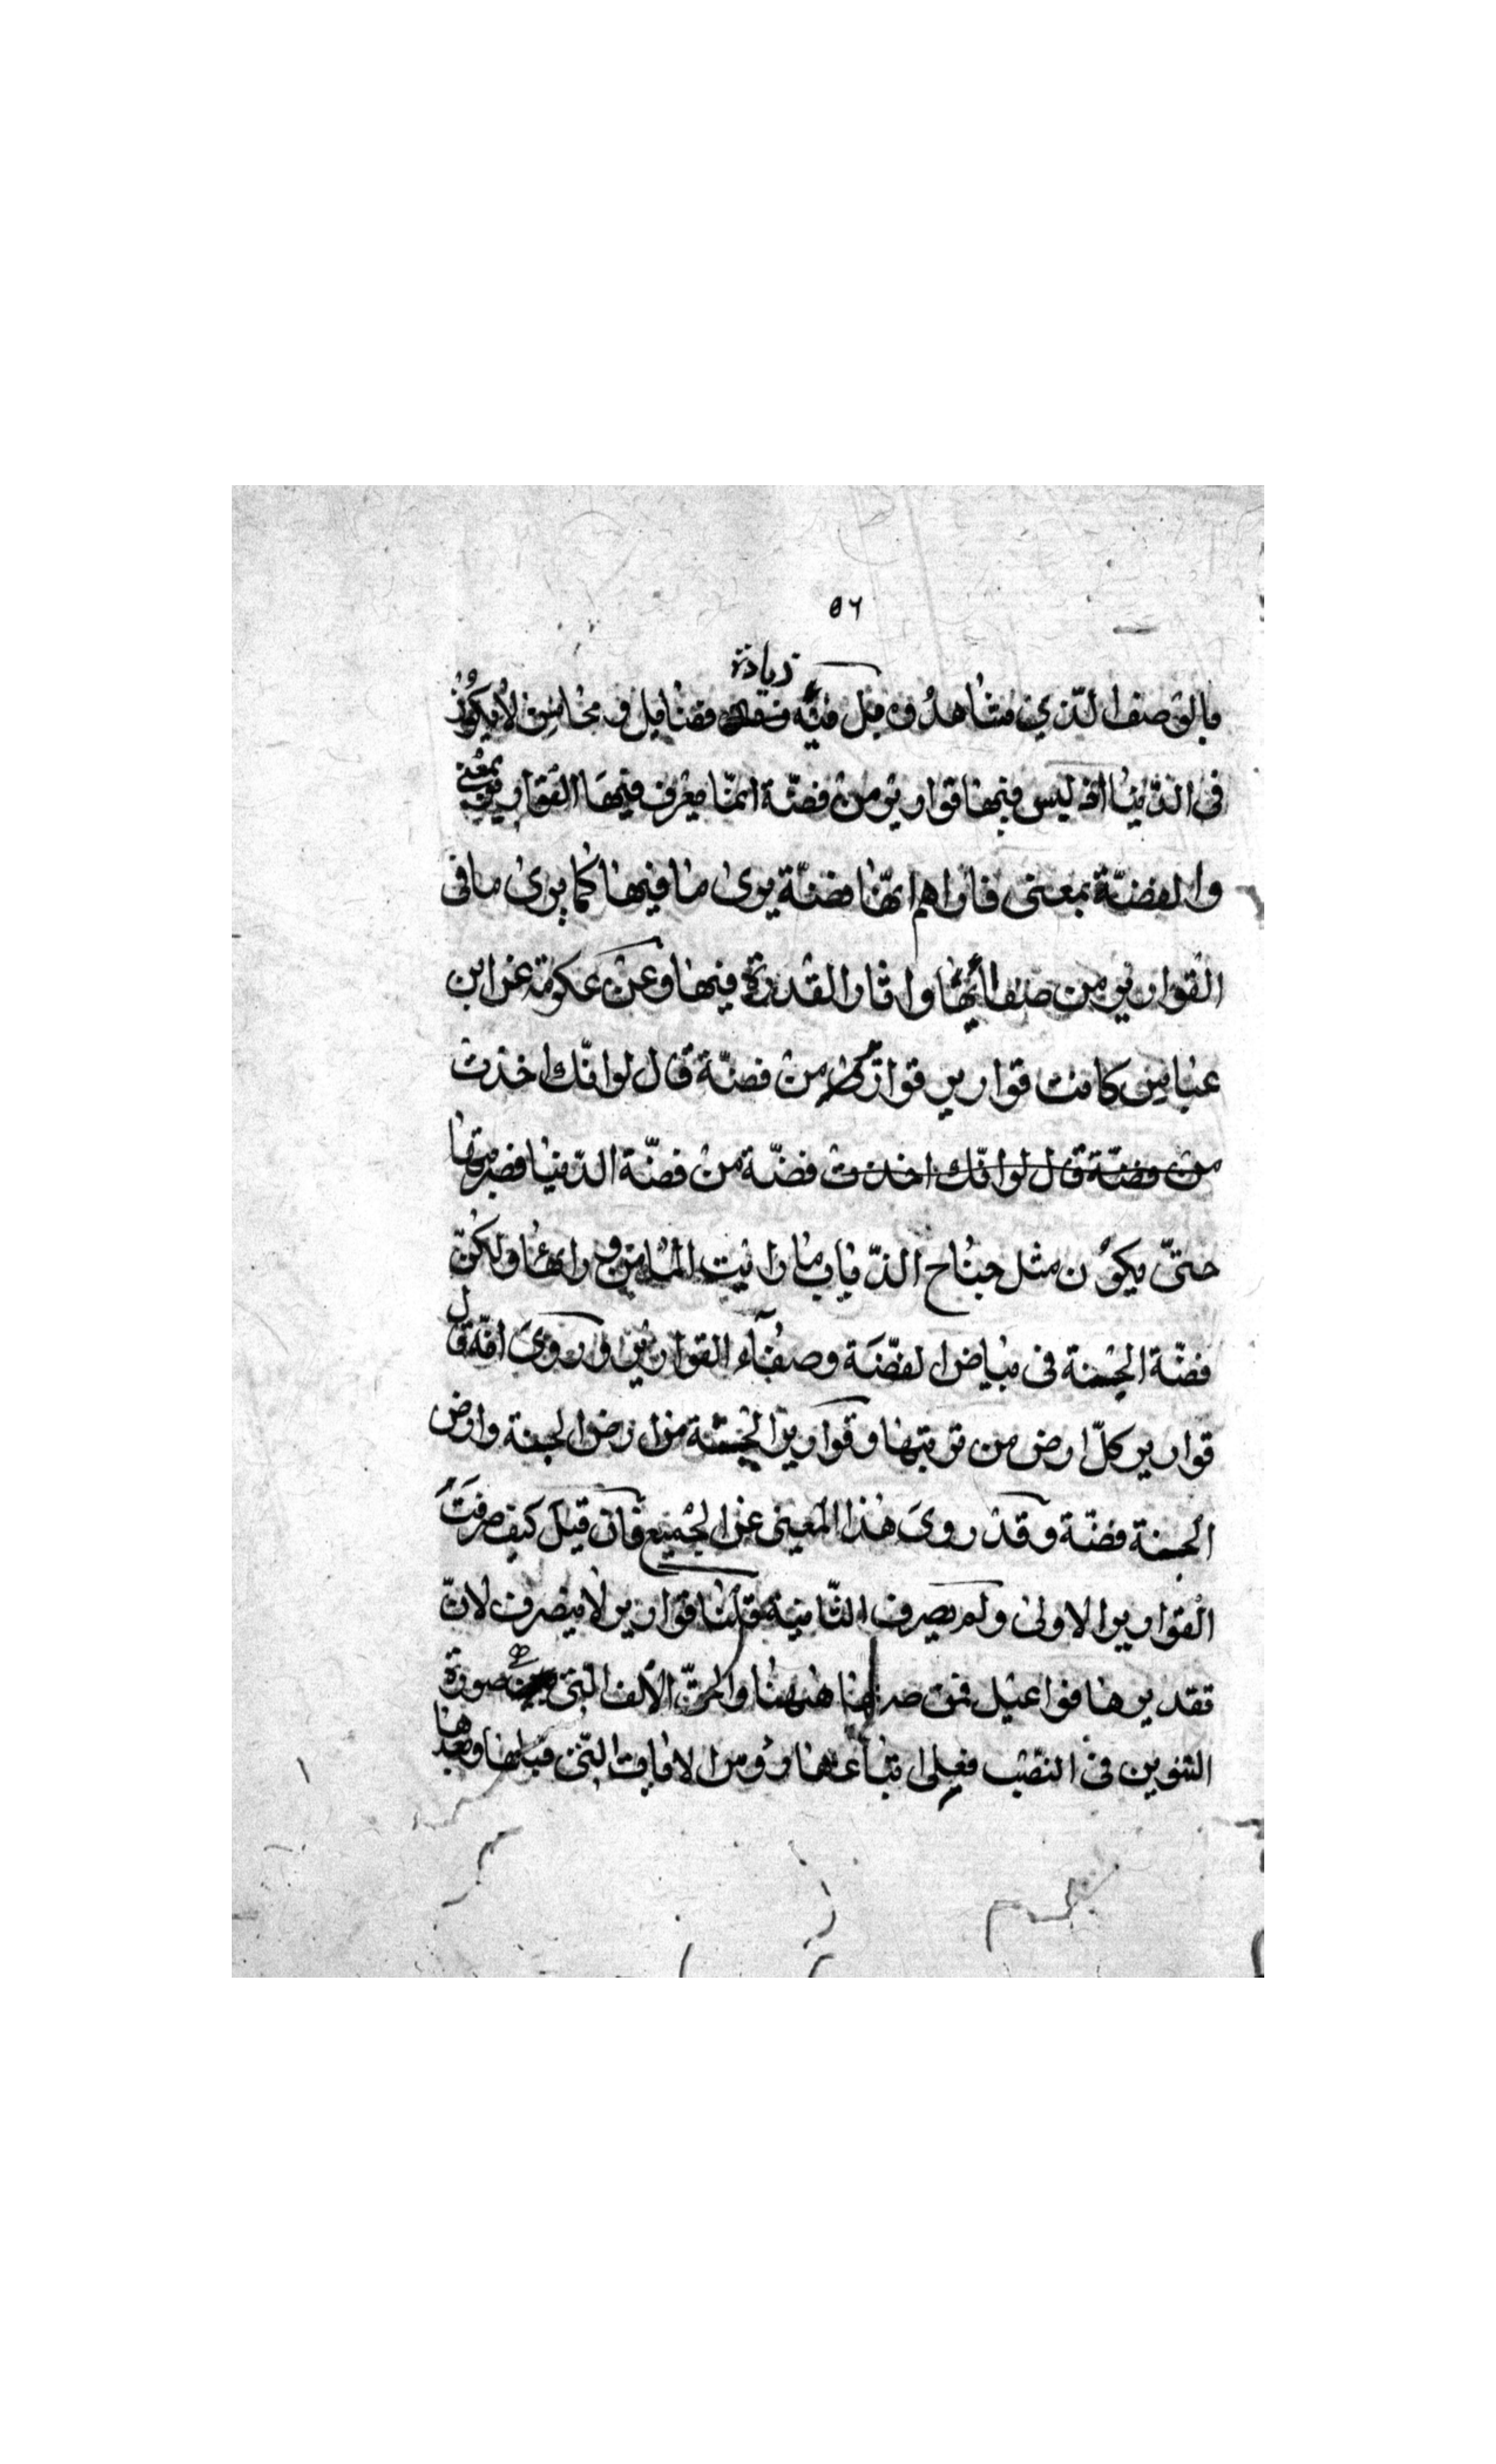 ٥٦
زيادة
بالوصف الذي مشاهد وفى قبل فيه فضايل و محاسن لا يكون
فى الدنيا اذ ليس فيها قوارير من فضة انما يعرف فيها القوارير بمعنى
والفضة بمعنى فاراهم انها فضة يرى ما فيها كما يرى ما فى
القوارير من صفائها واثار القدرة فيها وعن عكرمة عن ابن
عباس كانت قوارير قوارير من فضة قال لو انك اخذت
من فضة قال لو انك اخذت فضة من فضة الدنيا فضربتها
حتى يكون مثل جناح الذباب ما رايت الماء من ورائها ولكن
فضة الجنة فى بياض الفضة وصفاء القوارير وروى انه قال
قوارير كل ارض من تربتها وقوارير الجنة من ارض الجنة وارض
الجنة فضة وقد روى هذا المعنى عن الجميع فان قيل كيف صرفت
القوارير الاولى ولم يصرف الثانية قلنا قوارير لا ينصرف لان
تقديرها فواعيل فمن صرفها ههنا والحق الالف التى صورة
التنوين فى النصب فعلى اتباعها رؤس الايات التى قبلها وبعدها